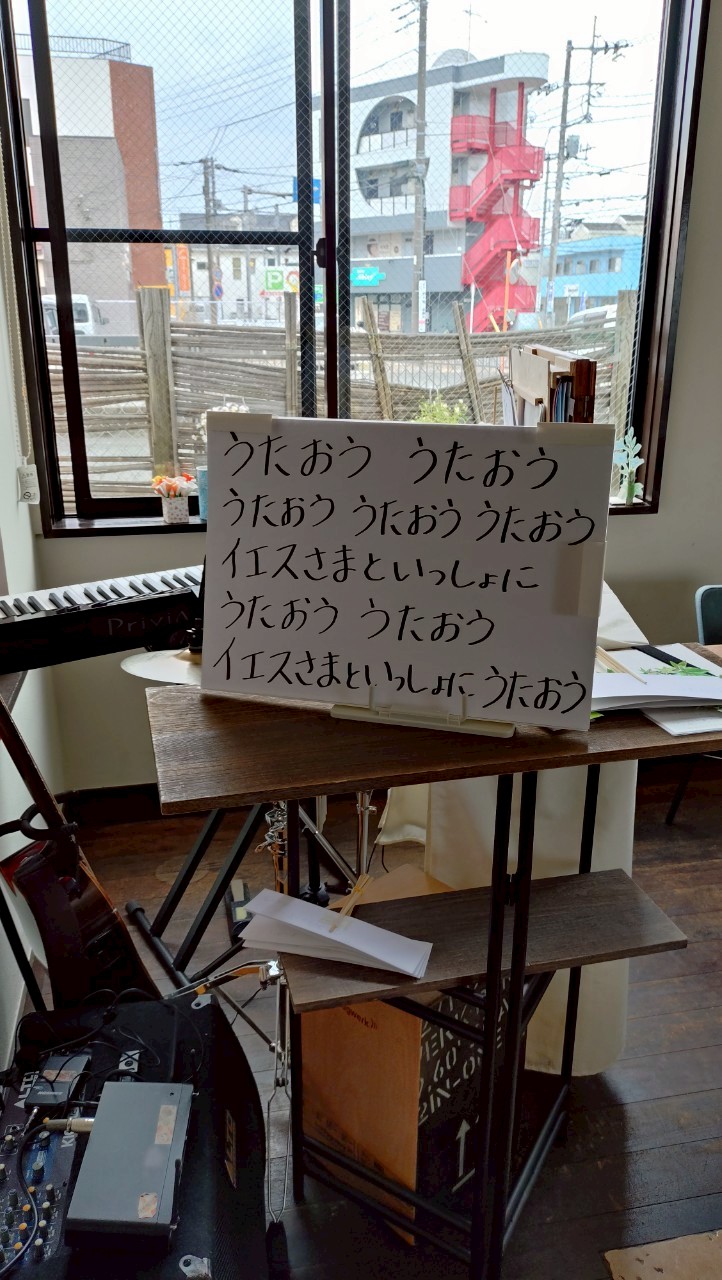 うたおう うたおう
うたおう うたおう うたおう
イエスさまといっしょに
うたおう うたおう
イエスさまといっしょに うたおう
Privia
P